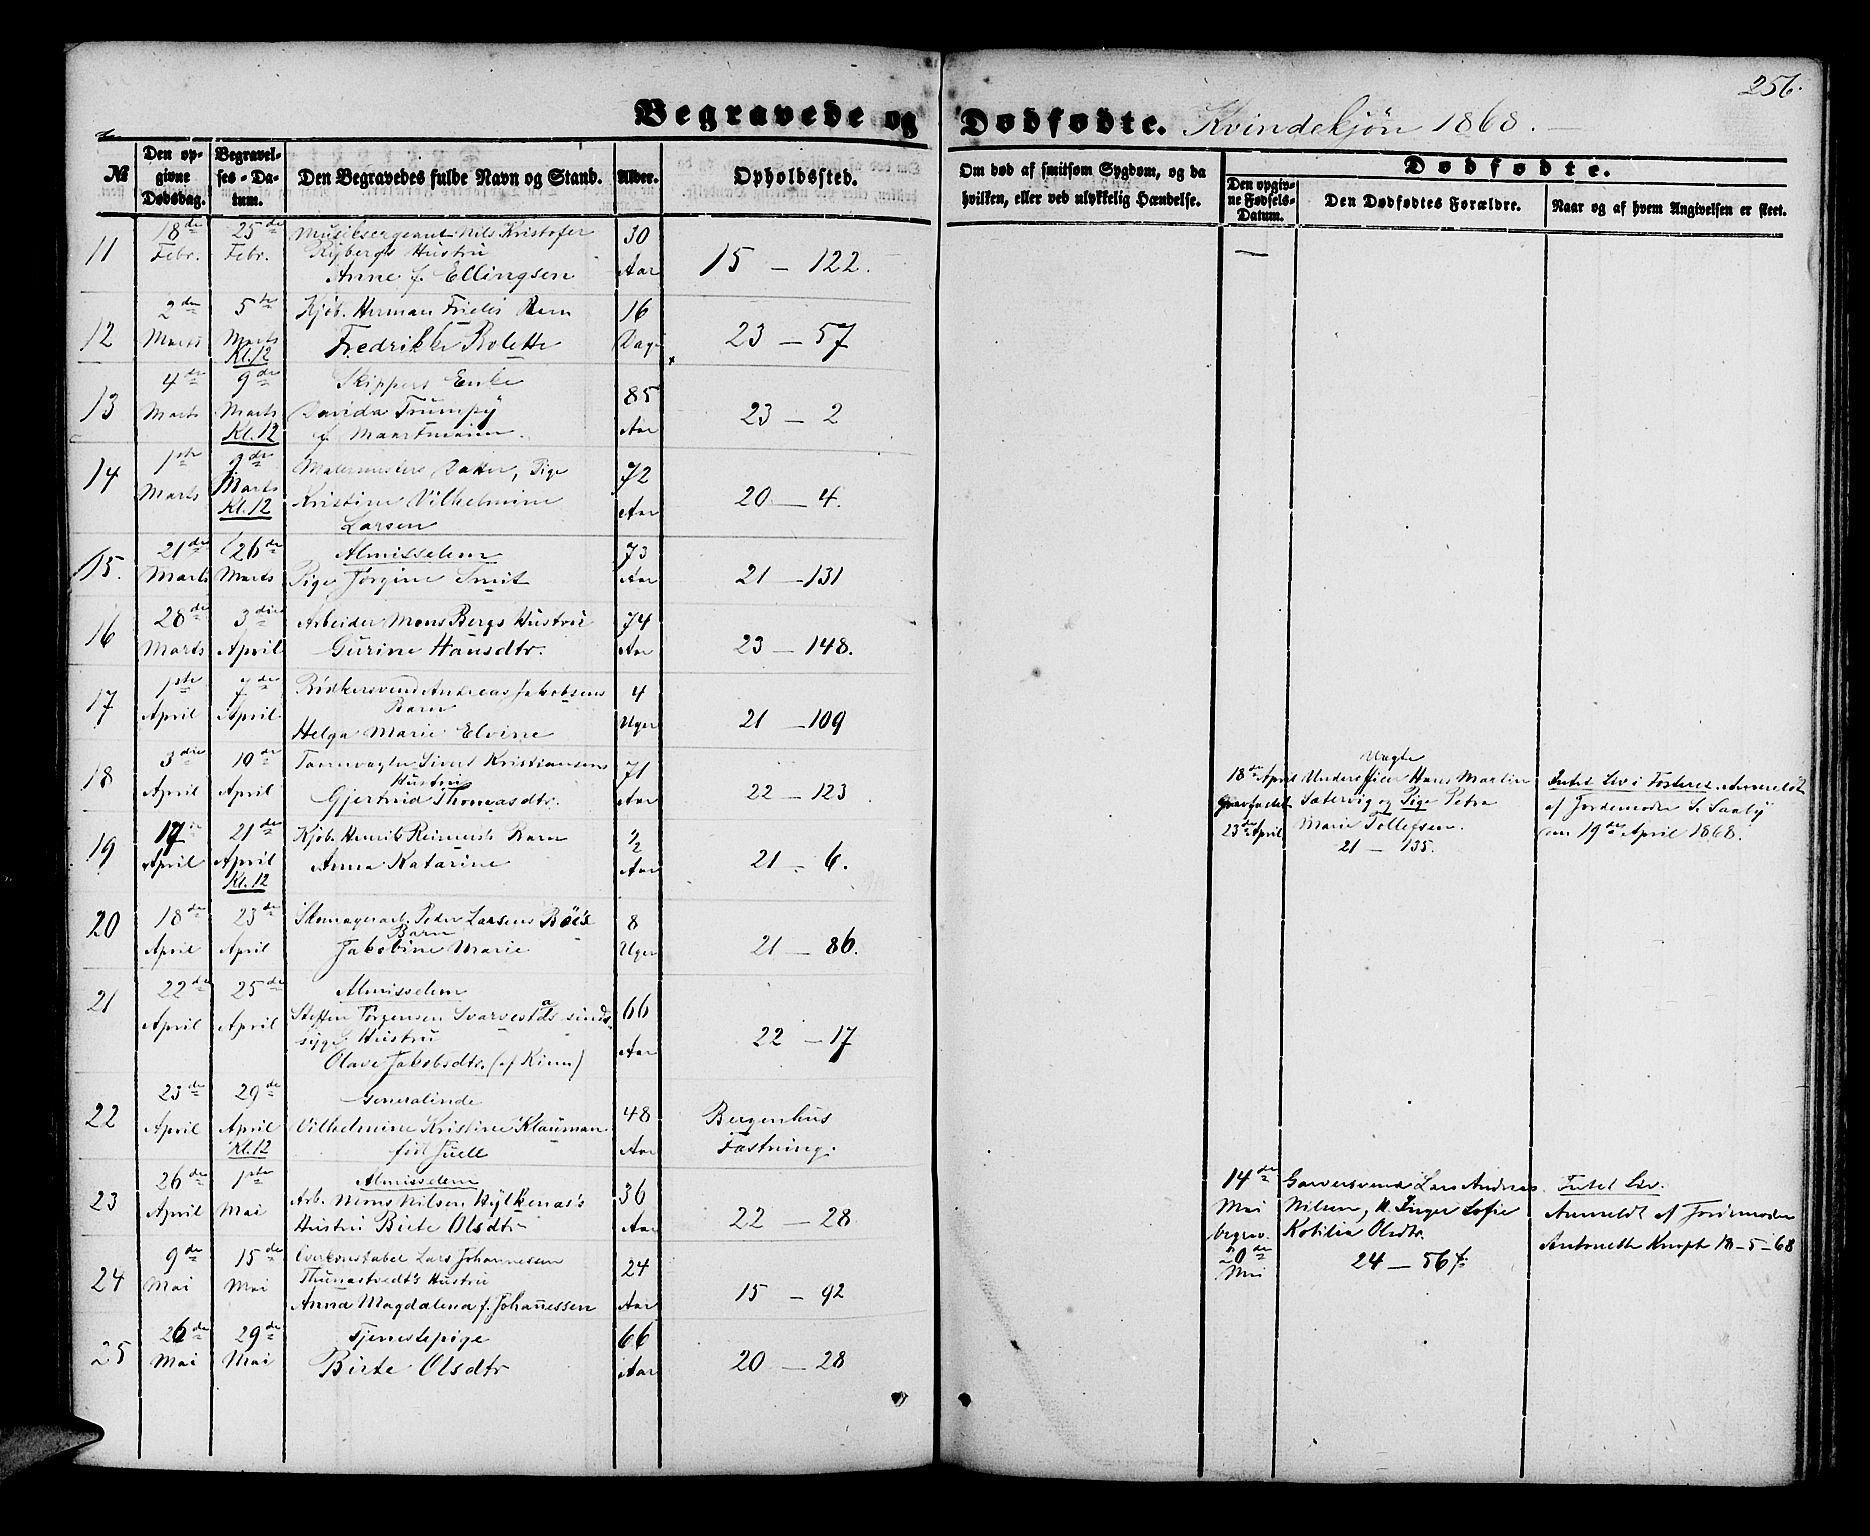 256.
Begravede og Dødfødte. Kvindekjøn 1868.
№
Den opgivne Dødsdag.
Begravelses-Datum.
Den Begravedes fulde Navn og Stand.
Alder.
Opholdssted.
Om død af smitsom Sygdom, og da hvilken, eller ved ulykkelig Hændelse.
Dødfødte.
Den opgivne Fødsels-Datum.
Den Dødfødtes Forældre.
Naar og af hvem Angivelsen er skeet.
11 18de Febr. 25de Febr. Musiksergeant Nils Kristofer
Rybergs Hustru
Anne f. Ellingsen 30 Aar 15 – 122.
12 2den Marts 5te Marts Kl. 12 Kjøb. Herman Frieles Barn
Fredrikke Bolette 16 Dage 23 – 57
13 4de Marts 9de Marts Kl. 12 Skippers Enke
Davida Trumpy
f. 85 Aar 23 – 2
14 1ste Marts 9de Marts Kl. 12 Malermesters Datter, Pige
Kristine Vilhelmine
Larsen 72 Aar 20 – 4.
15. 21de Marts 26de Marts Almisselem
Pige Jørgine Smit 73 Aar 21 – 131
16 28de Marts 3die April Arbeider Mons Bergs Hustru
Gurine Hansdtr. 74 Aar 23 – 148.
17 1ste April 7de April Bødkersvend Andreas Jakobsens
Barn
Helga Marie Elvine 4 Uger 21 – 109
18 3die April 10de April Taarnvægter Sivert Kristiansens
Hustru
Gjertrud Thomasdtr. 71 Aar 22 – 123
18de April Gravfæstet 23de April
Uægte
Underofficer Hans Martin
Sætervig og Pige Petra
Marie Tollefsen.
21 – 135.
Intet Liv i Fosteret. Anmeldt
af Jordemoder S. Saaby
den 19de April 1868.
19 17de April 21de April Kl. 12 Kjøb. Henrik Reimers Barn
Anna Katarine ½ Aar 21 – 6.
20 18de April 23de April Skomagerarb. Peder Larsens Böe's
Barn
Jakobine Marie 8 Uger 21 – 86.
21 22de April 25de April Almisselem
Steffen Torgensen Svarvestads sinds-
syge Hustru
Olave Jakobsdtr. (af Kinn) 66 Aar 22 – 17
22 23de April 29de April Kl. 12 Generalinde
Vilhelmine Kristine Klauman
født Juell 48 Aar Bergenhus
Fæstning.
23 26de April 1ste Mai Almisselem
Arb. Mons Nilsen Hylkenæs's
Hustru Birte Olsdtr 36 Aar 22 – 28
14de Mai begrav. 20de Mai
Garversvend Lars Andreas
Nilsen, H. Inger Sofie
Kobilia Olsdtr.
24 – 56 f.
Intet Liv.
Anmeldt af Jordemoder
Antonette Knoph 18–5–68
24 9de Mai 15de Mai Overkonstabel Lars Johannessen
Thunastvedt's Hustru
Anna Magdalena f. Johannessen 24 Aar 15 – 92
25 26de Mai 29de Mai Tjenestepige
Birte Olsdtr 66 Aar 20 – 28